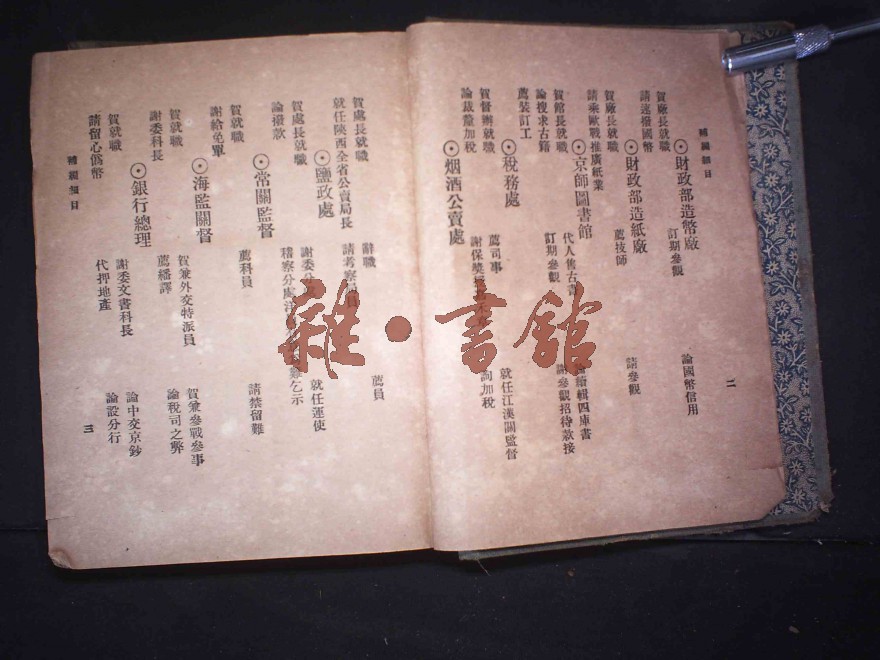 補編細目
二
⊙財政部造幣廠
賀廠長就職 訂期參觀 論國幣信用
請速撥國幣
⊙財政部造紙廠
賀廠長就職 薦技師 請參觀
請乘歐戰推廣紙業
⊙京師圖書館
賀館長就職 代人售古書 論續輯四庫書
論搜求古籍 訂期參觀 謝參觀招待款接
薦裝訂工
⊙稅務處
賀督辦就職 薦司事 就任江漢關監督
論裁釐加稅 謝保獎 詢加稅
⊙烟酒公賣處
賀處長就職 辭職 薦員
就任陝西全省公賣局長 請考察
⊙鹽政處
賀處長就職 謝委 就任運使
論撥款 稽察分處 乞示
⊙常關監督
賀就職 薦科員 請禁留難
謝給免單
⊙海監關督
賀就職 賀兼外交特派員 賀兼參戰參事
謝委科長 薦繙譯 論稅司之弊
⊙銀行總理
賀就職 謝委文書科長 論中交京鈔
請留心僞幣 代押地產 論設分行
補編細目
三
雜·書館